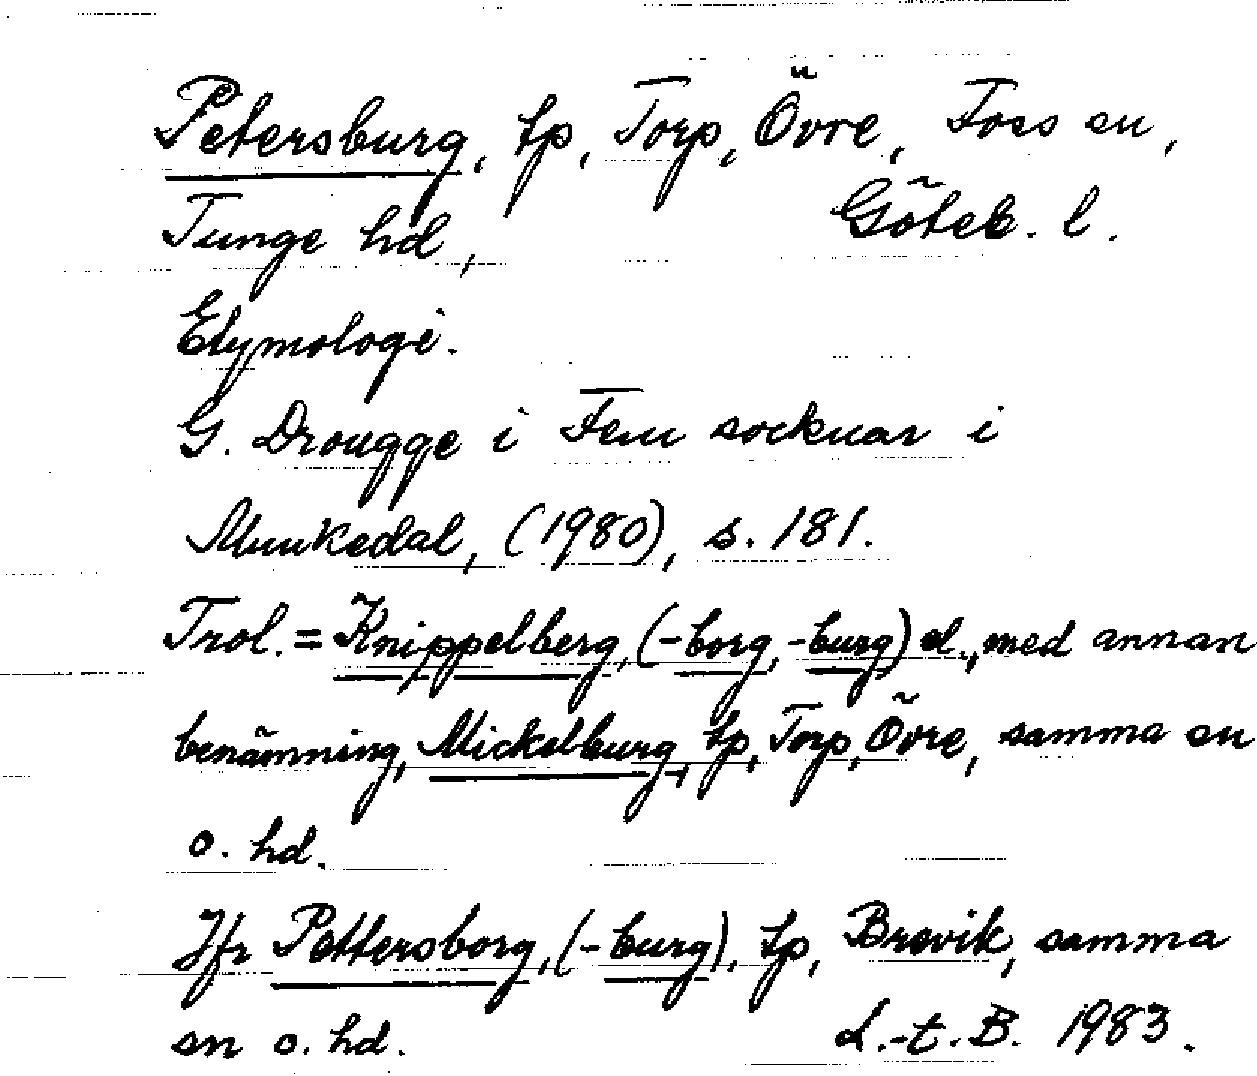 Petersburg, tp, Torp, Övre, Foss sn,
Tunge hd, Göteb. l.
Etymologi.
G. Drougge i Fem socknar i
Munkedal, (1980), s. 181.
Trol. = Knippelberg, (-borg, -burg) el., med annan
benämning, Mickelburg, tp, Torp, Övre, samma sn
o. hd.
Jfr Pettersborg, (-burg), tp, Brevik, samma
sn o. hd. L.-t. B. 1983.